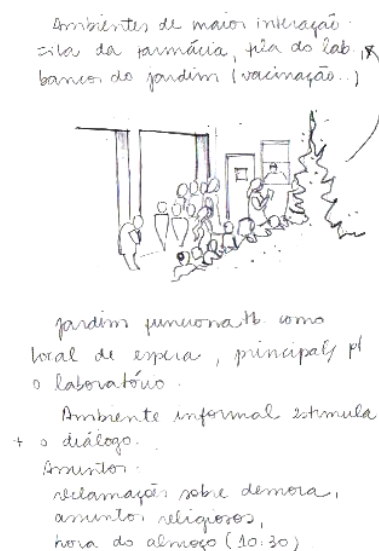 Ambientes de maior interação.
fila da farmácia, fila do lab.,
bancos do jardim (vacinação..)
jardim funciona tb como
local de espera, principal/ p/
o laboratório.
Ambiente informal estimula
+ o diálogo.
Assuntos:
reclamações sobre demora,
assuntos religiosos,
hora do almoço (10:30)